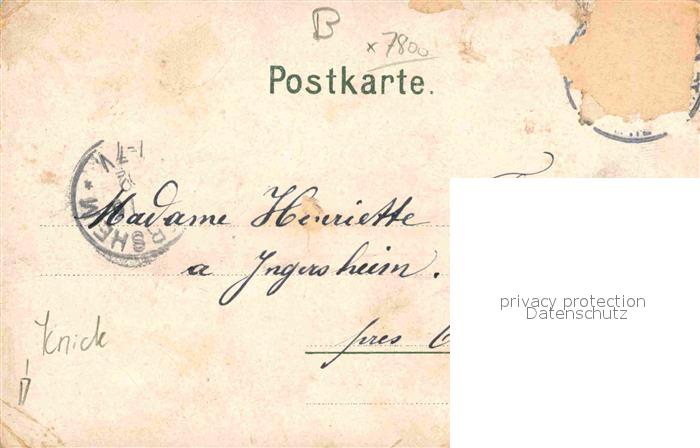 B
x 7800
Postkarte.
Madame Henriette
a Ingersheim.
près C
Knick
privacy protection
Datenschutz